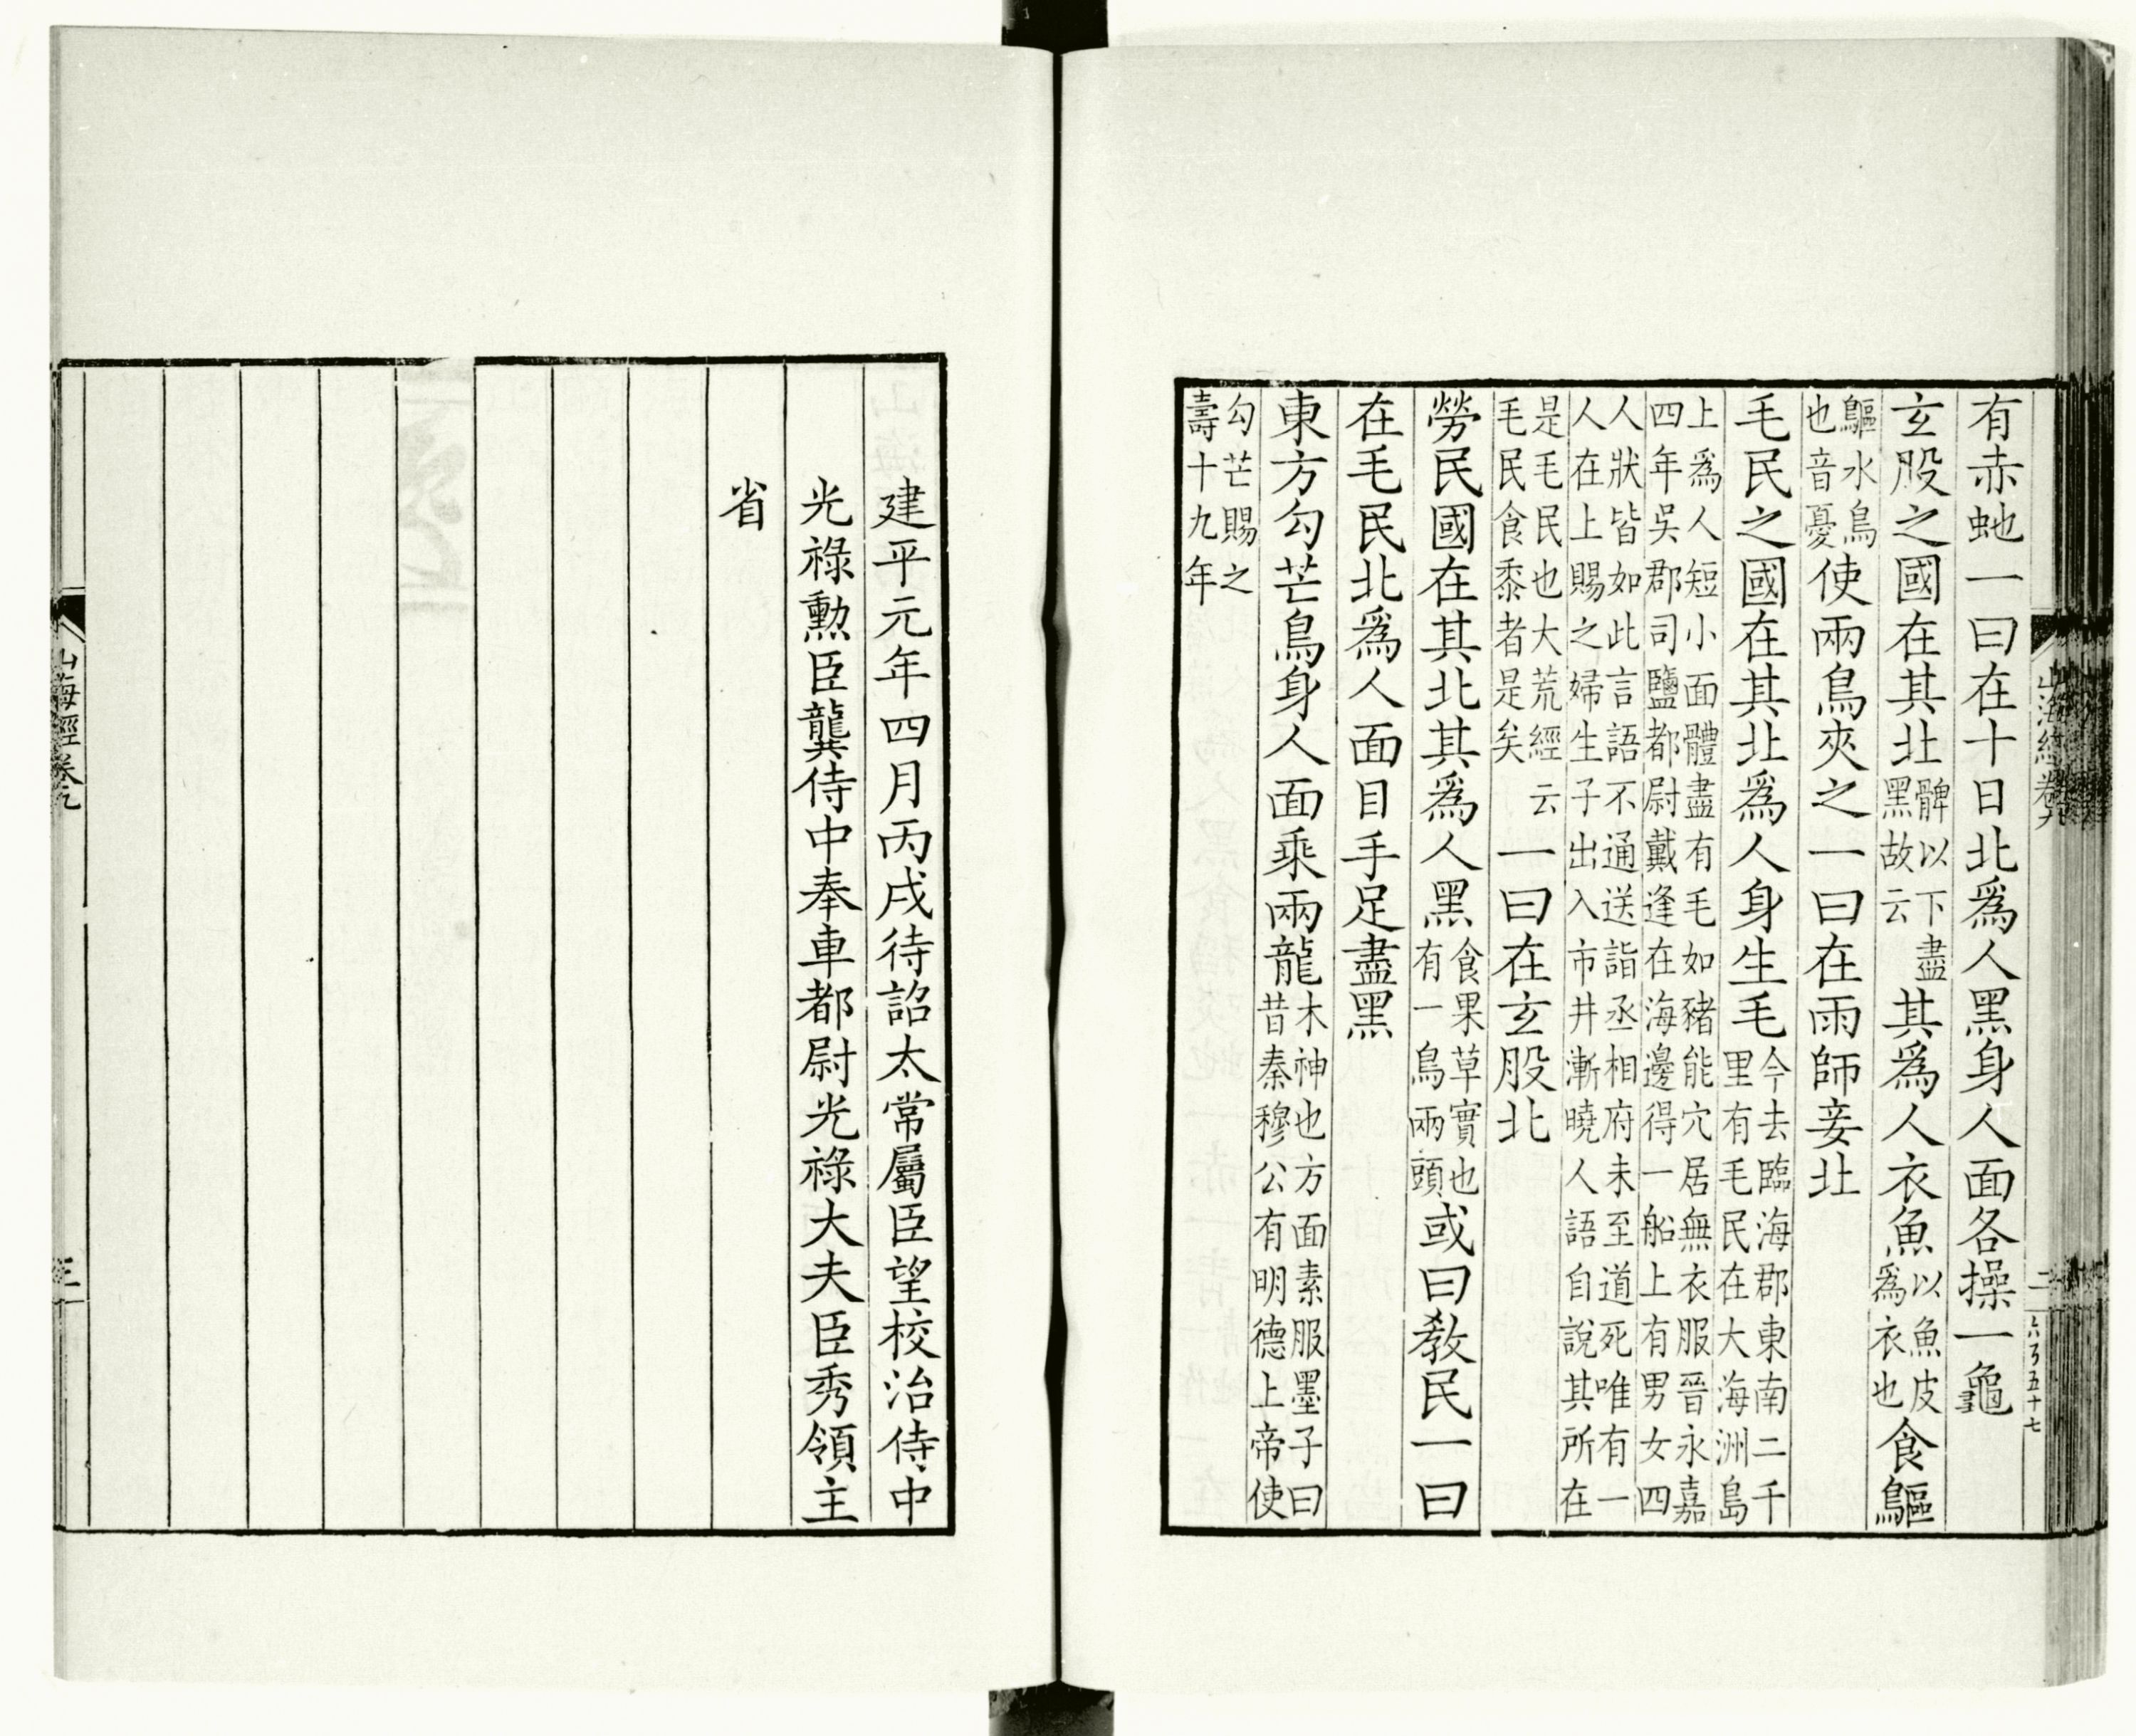 有赤虵一曰在十日北爲人黑身人面各操一龜
玄股之國在其北髀以下盡黑故云其爲人衣魚以魚皮爲衣也食䳼
䳼水鳥也音憂使兩鳥夾之一曰在雨師妾北
毛民之國在其北爲人身生毛今去臨海郡東南二千里有毛民在大海洲島
上爲人短小面體盡有毛如豬能穴居無衣服晉永嘉四年吳郡司鹽都尉戴逢在海邊得一船上有男女四
人狀皆如此言語不通送詣丞相府未至道死唯有一人在上賜之婦生子出入市井漸曉人語自說其所在
是毛民也大荒經云毛民食黍者是矣一曰在玄股北
勞民國在其北其爲人黑食果草實也有一鳥兩頭或曰敎民一曰
在毛民北爲人面目手足盡黑
東方勾芒鳥身人面乘兩龍木神也方面素服墨子曰昔秦穆公有明德上帝使
勾芒賜之壽十九年
山海經卷九
二
建平元年四月丙戌待詔太常屬臣望校治侍中
光祿勳臣龔侍中奉車都尉光祿大夫臣秀領主
省
山海經卷九
三